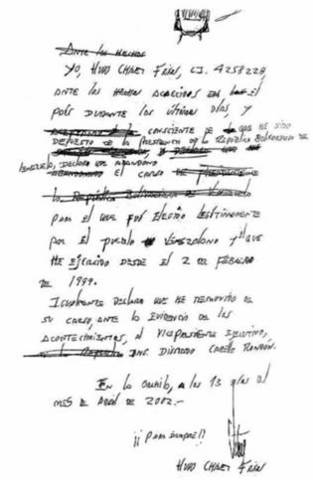 Ante los hechos
Yo, Hugo Chavez Frías, C.I. 4258228,
ante los hechos acaecidos en el
país durante los últimos días, y
consciente de que he sido
depuesto de la Presidencia de la República Bolivariana de
Venezuela, declaro que abandono
el cargo de
la República Bolivariana de Venezuela
para el que fuí electo legítimamente
por el pueblo venezolano y el que
he ejercido desde el 2 de febrero
de 1999.
Igualmente declaro que he removido de
su cargo, ante la evidencia de los
acontecimientos, al Vicepresidente Ejecutivo,
Ing. Diosdado Cabello Rondón.
En la Orchila, a los 13 días del
mes de abril de 2002.-
¡¡Para siempre!!
Hugo Chavez Frías